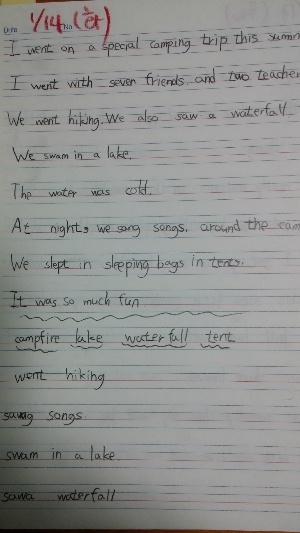 Date 1/14 No
I went on a special camping trip this summ
I went with seven friends and two teacher
We went hiking. We also saw a waterfall
We swam in a lake.
The water was cold.
At night, we song songs, around the cam
We slept in sleeping bags in tents.
It was so much fun
campfire lake waterfall tent
went hiking
songs
swam in a lake.
sawa waterfall